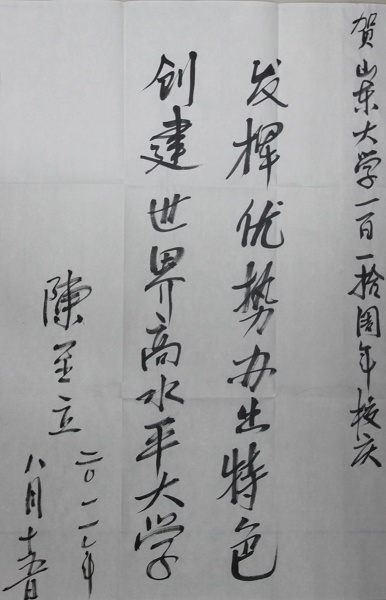 贺山东大学一百一拾周年校庆
发挥优势办出特色
创建世界高水平大学
陳至立
二〇一一年
八月十五日